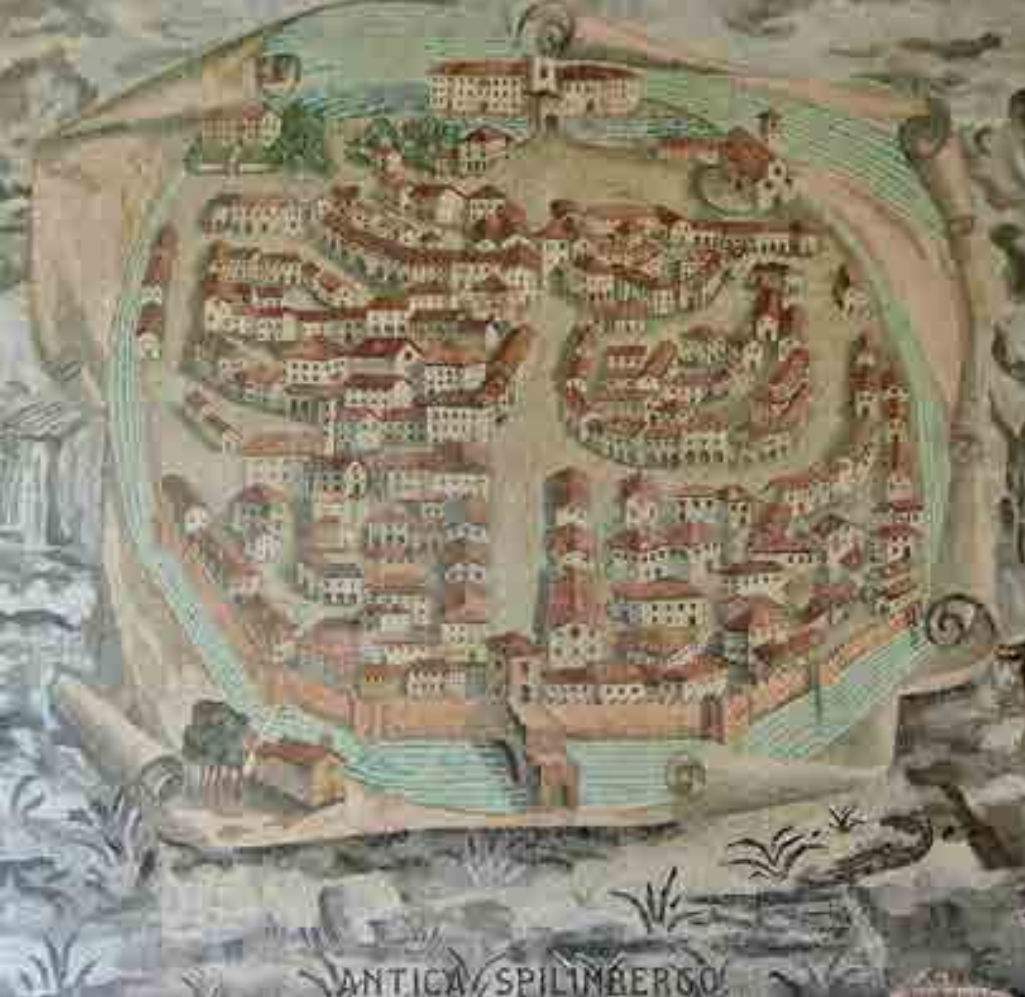 ANTICA SPILIMBERGO